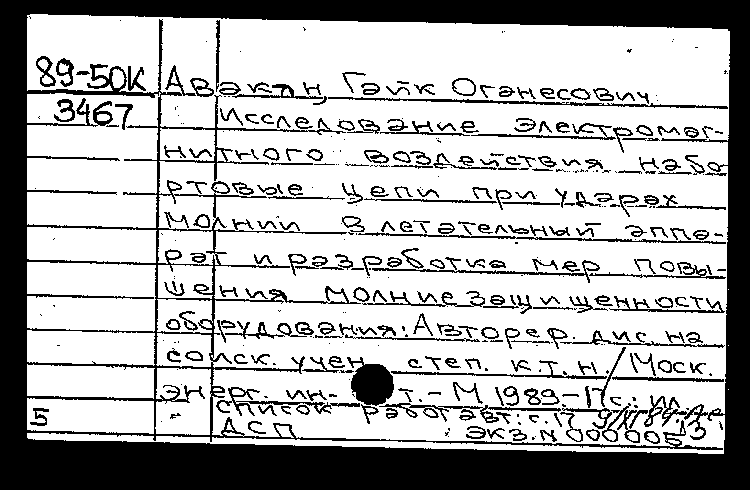 89-50К Авакян, Гайк Оганесович
3467 Исследование электромаг-
нитного воздействия на бо-
ртовые цепи при ударах
молнии в летательный аппа-
рат и разработка мер повы-
шения молниезащищенности
оборудования: Автореф. дис. на
соиск. учен. степ. к.т.н. / Моск.
энерг. ин-т. - М 1989 - 17с.: ил
Список работ авт.: с. 17
5 ДСП экз. N 000005